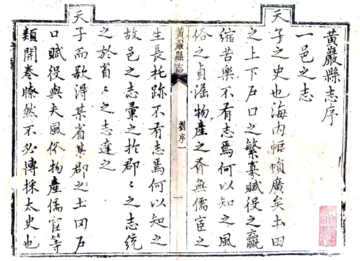 黃巖縣志序
一邑之志
天子之史也海內幅幀廣矣土田
之上下戶口之繁寡賦役之贏
縮苦樂不有志焉何以知之風
俗之貞淫物產之脊無儒宦之
黃巖縣志
舊序一
生長托跡不有志焉何以知之
故邑之志彙之於郡郡之志統
之於省省之志達之
天子而歎淂某省某郡之土田戶
口賦役與夫風俗物產儒宦等
類開卷瞭然不必博採太史也